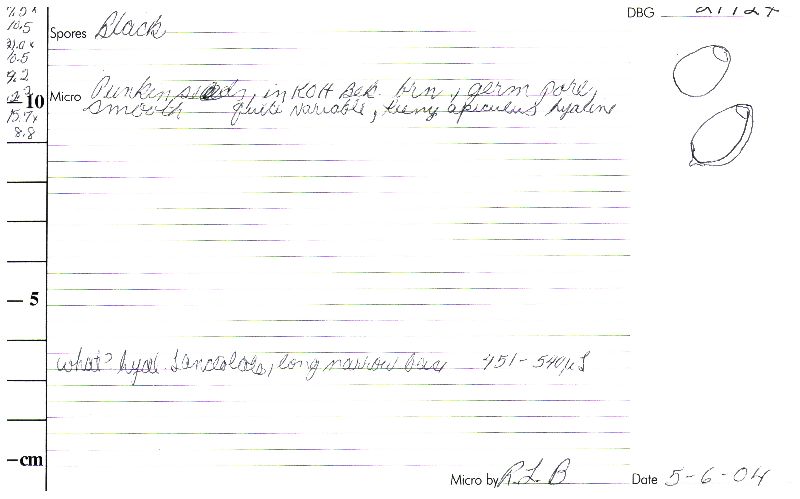 DBG
10.5
Spores Black
21.0 x
10.5
9.2
Micro Punkin seedy, in KOH Bek. brn, germ pore,
10
smooth quite variable, teeny apiculus hyaline
15.7 x
8.8
5
what? hyal. Lanceolate, long narrow base 451-540µ L
cm
Micro by R L B Date 5-6-04